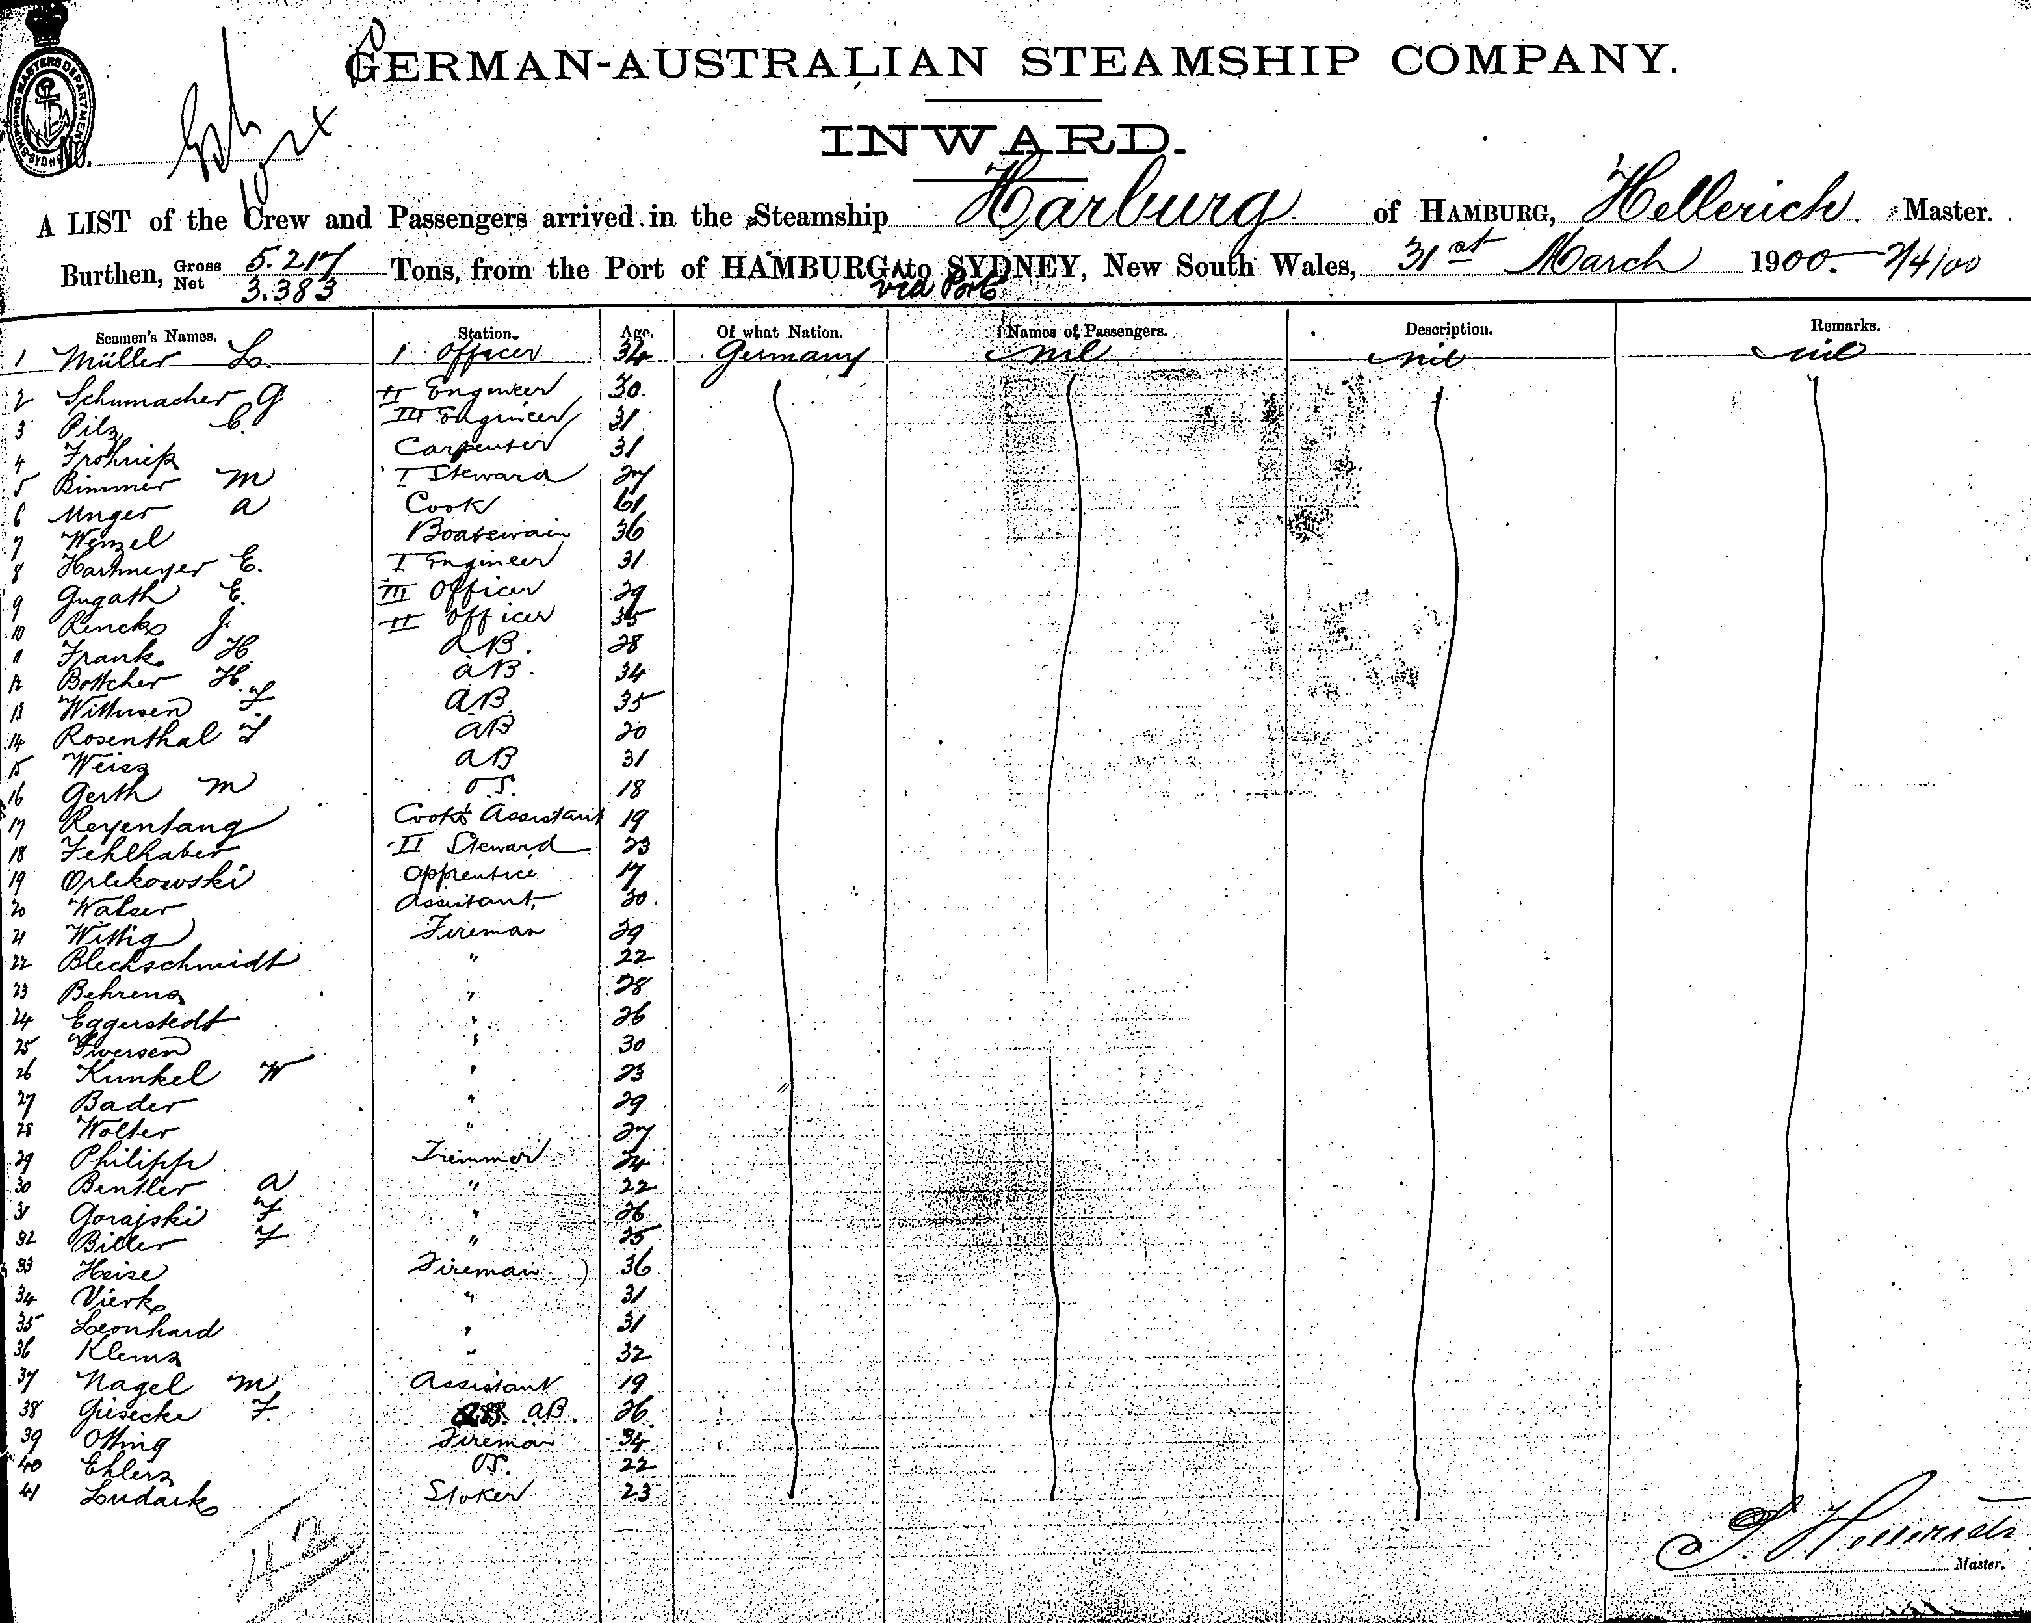 GERMAN-AUSTRALIAN STEAMSHIP COMPANY.
INWARD.
A LIST of the Crew and Passengers arrived in the Steamship Harburg of HAMBURG, Hellerich Master.
Burthen, Gross 5.217 Net 3.383 Tons, from the Port of HAMBURG to SYDNEY, New South Wales, 31st March 1900. 2/4/00
via Ports
Seamen's Names. Station. Age. Of what Nation. Names of Passengers. Description. Remarks.
1 Müller L. I Officer 34 Germany nil nil nil
2 Schumacher G II Engineer 30.
3 Pilz C. III Engineer 31
4 Frohriep Carpenter 31
5 Bimmer M I Steward 27
6 Unger A Cook 61
7 Wenzel Boatswain 36
8 Hartmeyer E. I Engineer 31
9 Gugath E. III Officer 29
10 Rencks J. II Officer 35
11 Frank H AB. 28
12 Bottcher H. AB. 34
13 Withusen F AB. 35
14 Rosenthal F AB 20
15 Weisz AB 31
16 Gerth M O.S. 18
17 Reyentang Cook's Assistant 19
18 Fehlhaber II Steward 23
19 Orlikowski Apprentice 17
20 Walser Assistant, 30.
21 Wittig Fireman 29
22 Bleckschmidt " 22
23 Behrens " 28
24 Eggerstedt " 26
25 Iwersen " 30
26 Kunkel W " 23
27 Bader " 29
28 Wolter " 27
29 Philipp Trimmer 24
30 Bentler A " 22
31 Gorajski F " 26
32 Biller F " 25
33 Heise Fireman 36
34 Vierk " 31
35 Leonhard " 31
36 Klems " 32
37 Nagel M Assistant 19
38 Giesecke F. AB. 26
39 Otting Fireman 34
40 Ehlers OS. 22
41 Ludack Stoker 23
42
Master.